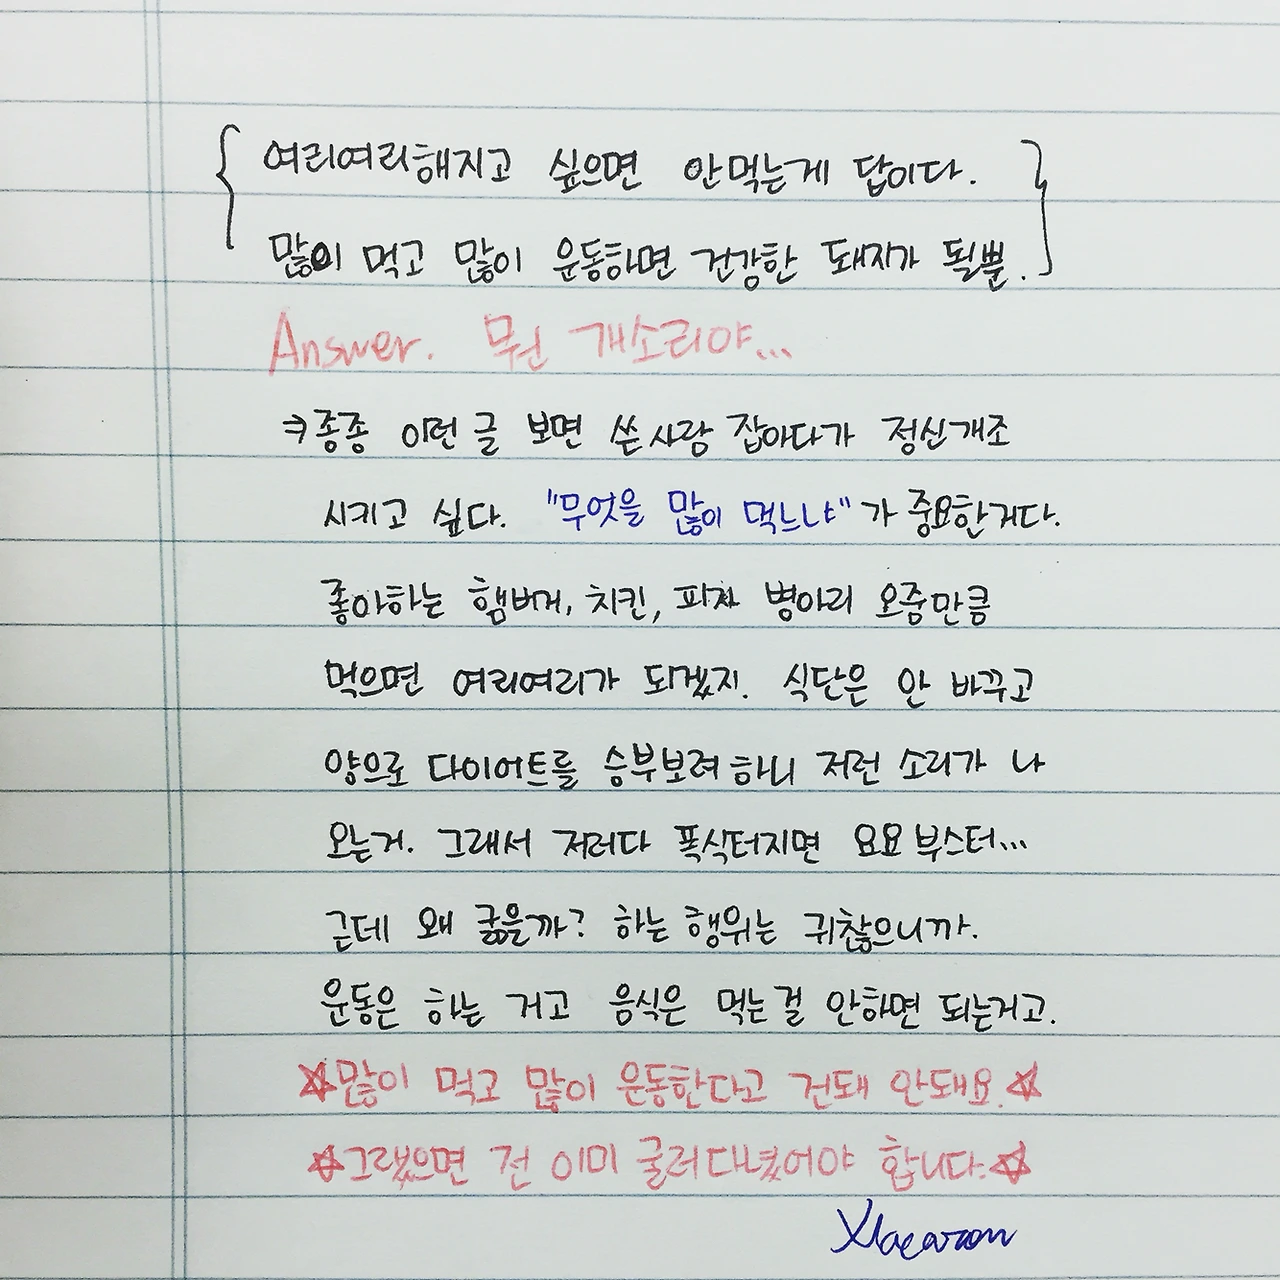 여리여리해지고 싶으면 안먹는게 답이다.
많이 먹고 많이 운동하면 건강한 돼지가 될뿐.
Answer. 뭔 개소리야...
⇒종종 이런 글 보면 쓴사람 잡아다가 정신개조
시키고 싶다. "무엇을 많이 먹느냐"가 중요한거다.
좋아하는 햄버거, 치킨, 피자 병아리 오줌만큼
먹으면 여리여리가 되겠지. 식단은 안 바꾸고
양으로 다이어트를 승부보려 하니 저런 소리가 나
오는거. 그래서 저러다 폭식터지면 요요 부스터...
근데 왜 굶을까? 하는 행위는 귀찮으니까.
운동은 하는 거고 음식은 먹는걸 안하면 되는거고.
☆많이 먹고 많이 운동한다고 건돼 안돼요.☆
☆그랬으면 전 이미 굴러다녔어야 합니다.☆